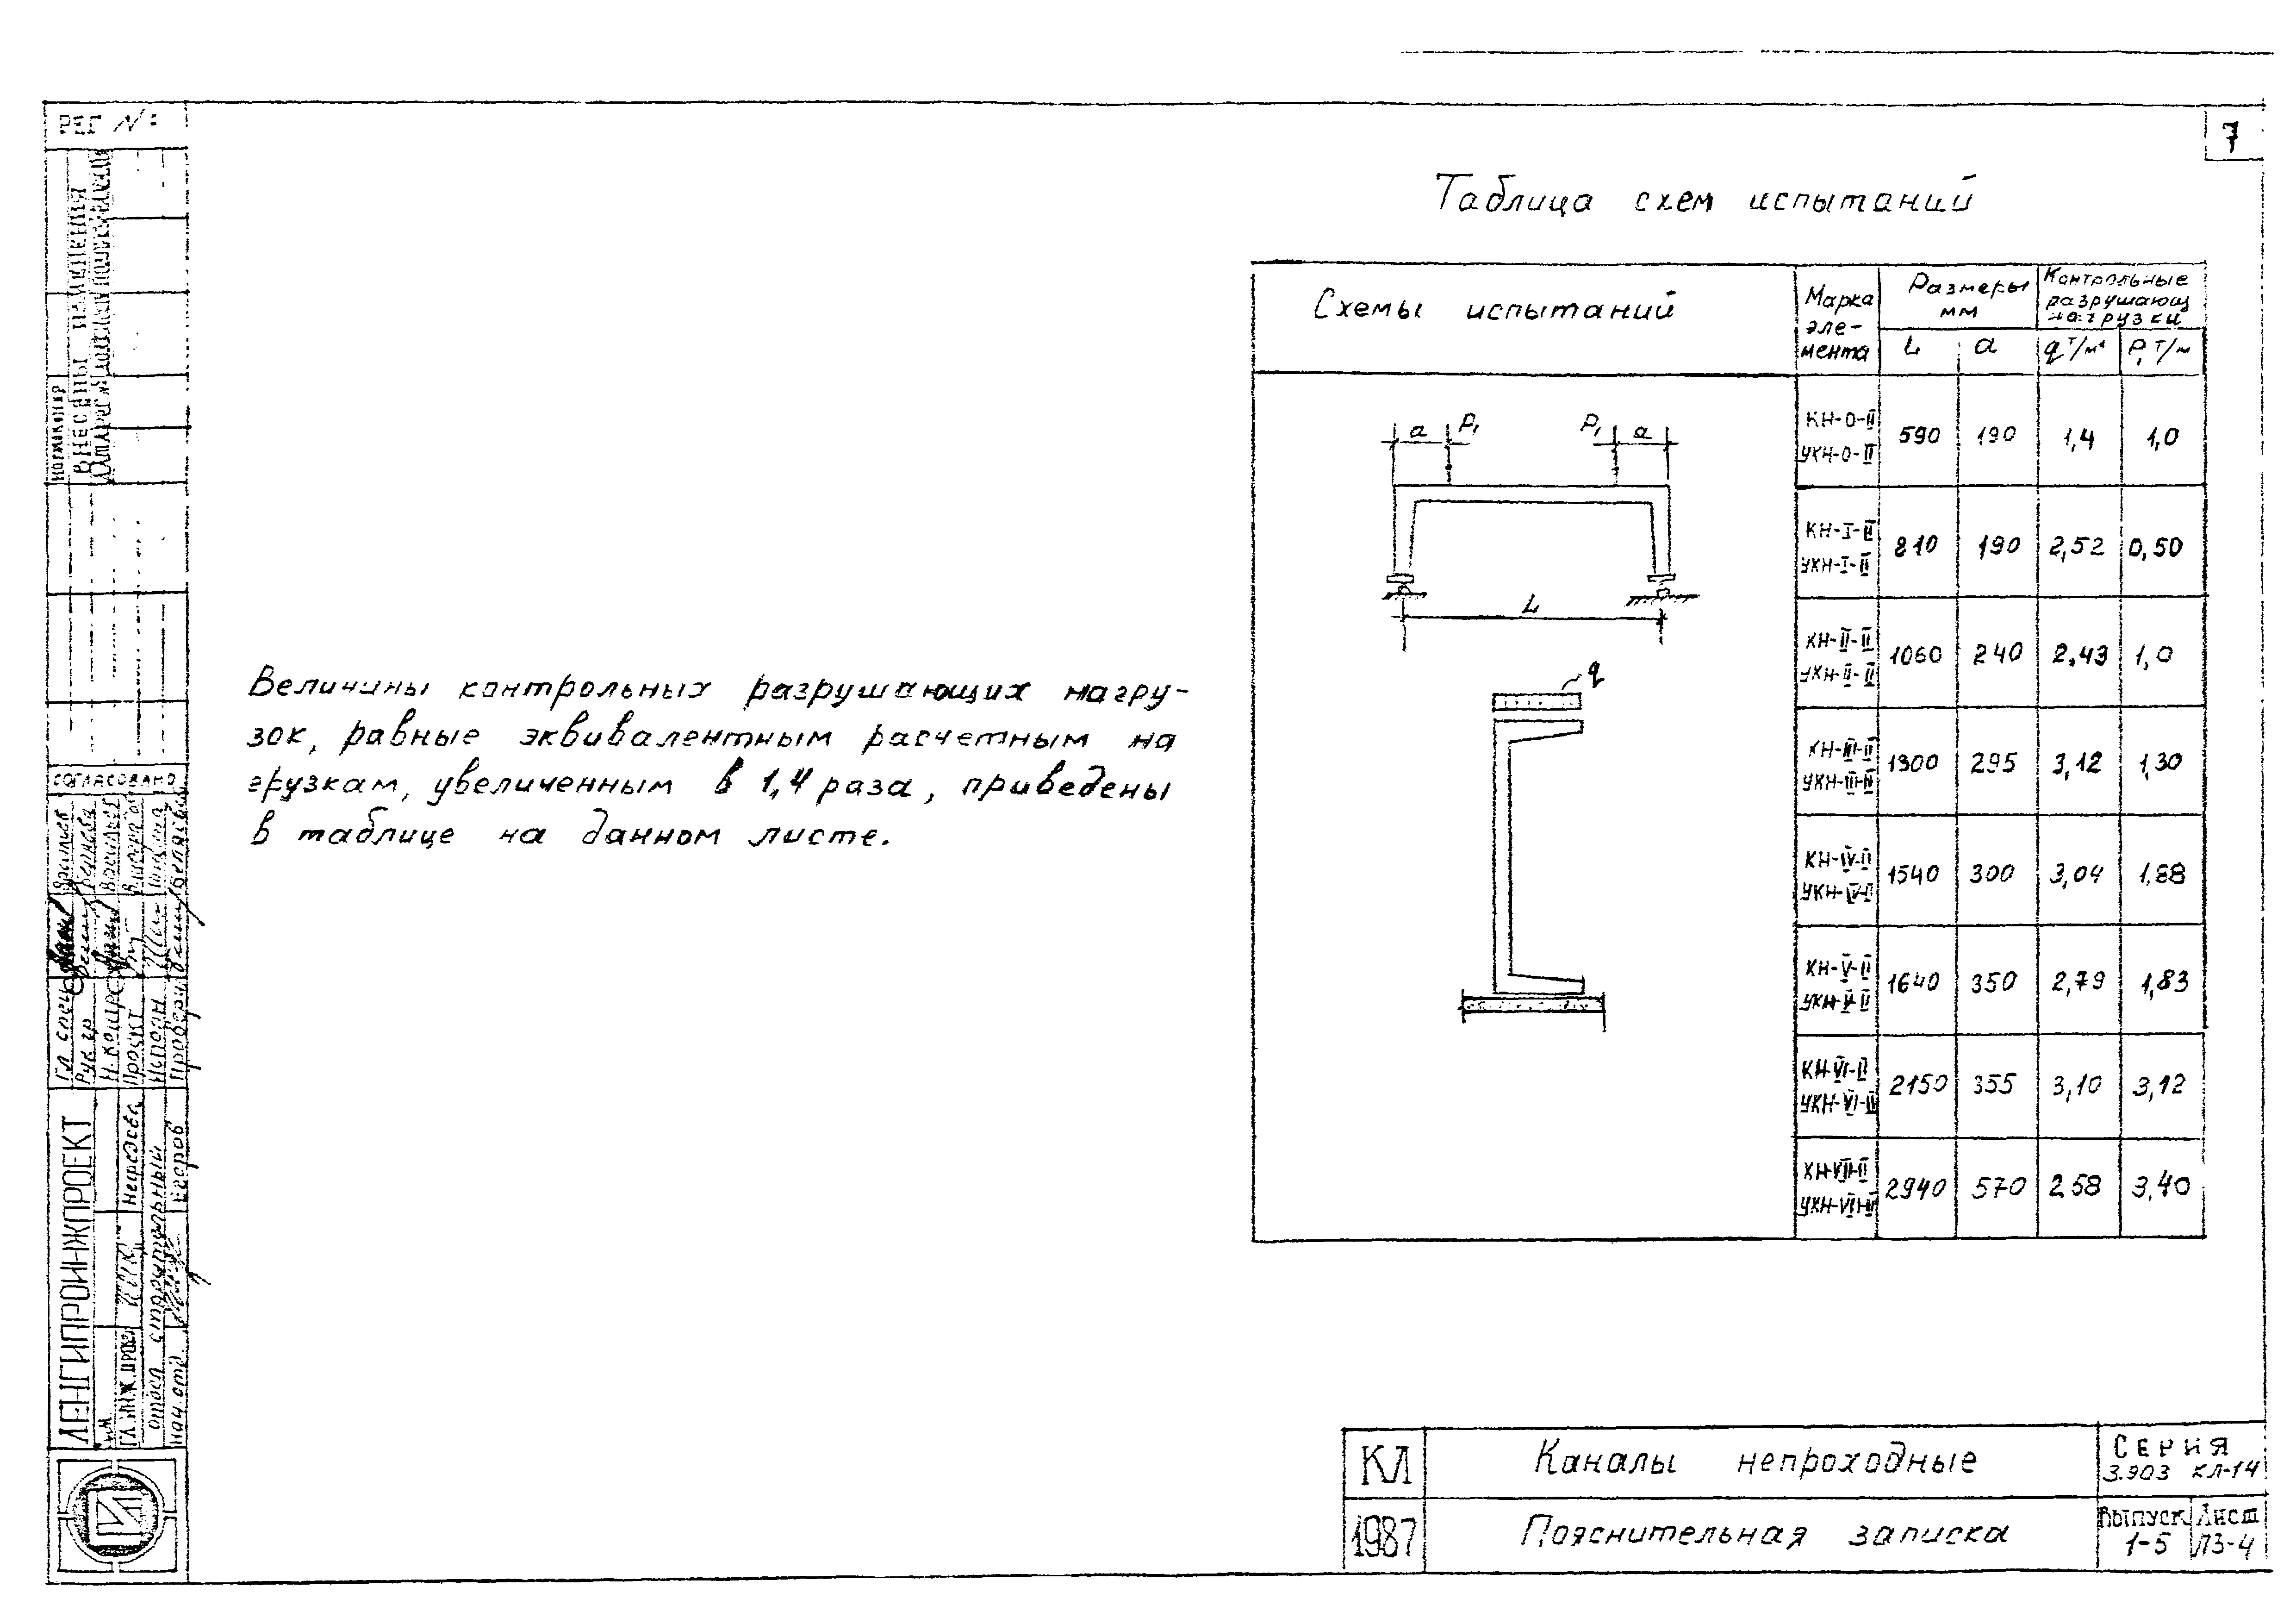 7
РЕГ №:
ВНЕСЕНЫ ИЗМЕНЕНИЯ
СОГЛАСОВАНО
Гл спец
Рук гр
Н. контр
Проект
Исполн
Провер
ЛЕНГИПРОИНЖПРОЕКТ
ГЛ. ИНЖ. ПРОЕК
отдел строительный
нач. отд.
Егоров
Величины контрольных разрушающих нагру-
зок, равные эквивалентным расчетным на
грузкам, увеличенным в 1,4 раза, приведены
в таблице на данном листе.
Таблица схем испытаний
Схемы испытаний
Марка
эле-
мента
Размеры
мм
L a
Контрольные
разрушающ
нагрузки
q т/м² P₁ т/м
a P₁ P₁ a
L
q
КН-0-II
УКН-0-II
590 190 1,4 1,0
КН-I-II
УКН-I-II
810 190 2,52 0,50
КН-II-II
УКН-II-II
1060 240 2,43 1,0
КН-III-II
УКН-III-II
1300 295 3,12 1,30
КН-IV-II
УКН-IV-II
1540 300 3,04 1,88
КН-V-II
УКН-V-II
1640 350 2,79 1,83
КН-VI-II
УКН-VI-II
2150 355 3,10 3,12
КН-VII-II
УКН-VII-II
2940 570 2.58 3,40
КЛ
Каналы непроходные
СЕРИЯ
3.903 КЛ-14
1987
Пояснительная записка
Выпуск
1-5
Лист
ПЗ-4